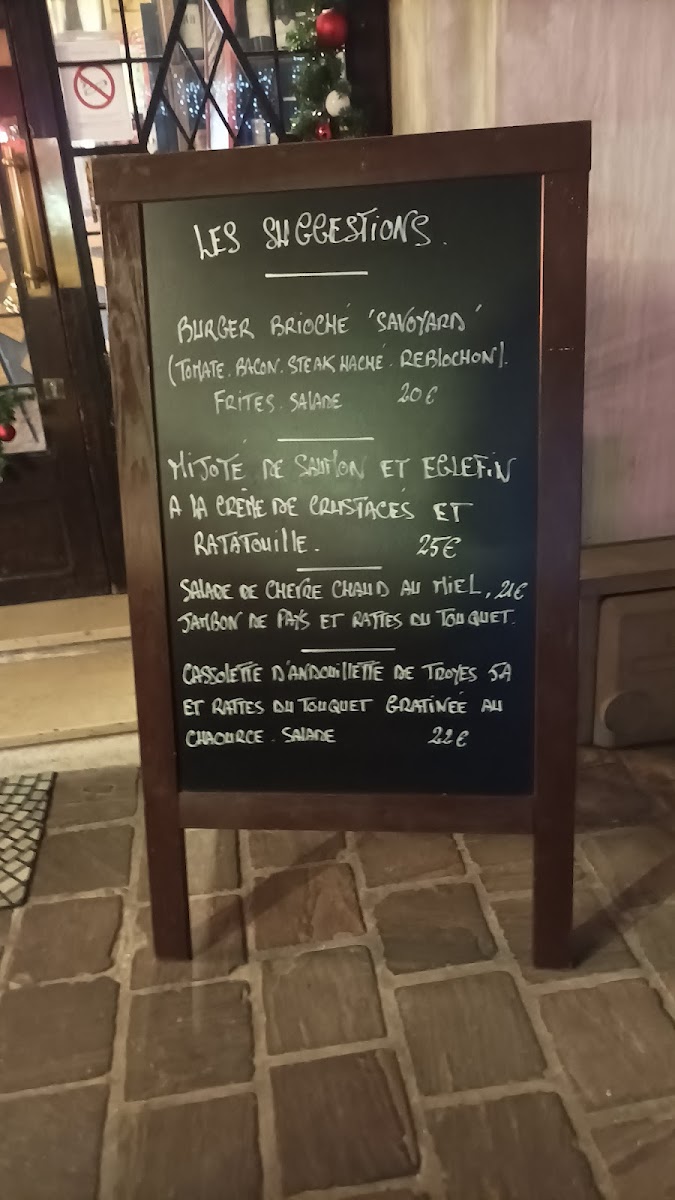 LES SUGGESTIONS.
BURGER BRIOCHÉ 'SAVOYARD'
(TOMATE. BACON. STEAK HACHÉ. REBLOCHON).
FRITES. SALADE 20€
MIJOTÉ DE SAUMON ET EGLEFIN
A LA CRÈME DE CRUSTACÉS ET
RATATOUILLE. 25€
SALADE DE CHEVRE CHAUD AU MIEL, 21€
JAMBON DE PAYS ET RATTES DU TOUQUET.
CASSOLETTE D'ANDOUILLETTE DE TROYES 5A
ET RATTES DU TOUQUET GRATINÉE AU
CHAOURCE. SALADE 22€